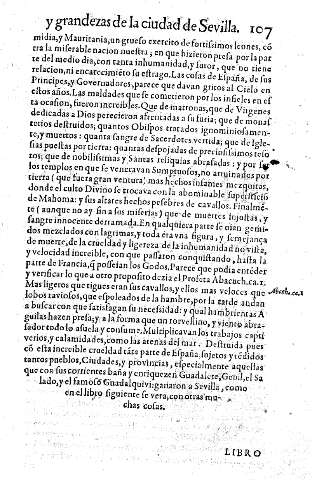 y grandezas de la ciudad de Sevilla. 107
midia, y Mauritania, un grueso exercito de fortissimos leones, cō
tra la miserable nacion nuestra; en que hizieron presa por la par
te del medio dia, con tanta inhumanidad, y furor, que no tiene
relacion, ni encarecimiēto su estrago. Las cosas de España, de sus
Principes, y Governadores, parece que davan gritos al Cielo en
estos años. Las maldades que se cometieron por los infieles en es
ta ocasion, fueron increibles. Que de matronas, que de Virgenes
dedicadas a Dios perecieron afrentadas a su furia; que de monas
terios destruidos; quantos Obispos tratados ignominiosamen-
te, y muertos; quanta sangre de Sacerdotes vertida; que de Igle-
sias puestas por tierra; quantas despojadas de preciosissimos teso
ros; que de nobilissimas y Santas reliquias abrasadas; y por
los templos en que se veneravan Sumptuosos, no arruinados por
tierra (que fuera gran ventura) mas hechos infames mezquitas,
donde el culto Divino se trocava con la abominable supersticiō
de Mahoma; y sus altares hechos pesebres de cavallos. Finalmē-
te (aunque no ay fin a sus miserias) que de muertes injustas, y
sangre innocente derramada. En qualquiera parte se oian gemi-
dos mezclados con lagrimas, y toda era una figura, y semejança
de muerte, de la crueldad y ligereza de la inhumanidad no vista,
y velocidad increible, con que passaron conquistando, hasta la
parte de Francia, q̃ posseian los Godos. Parece que podia entēder
y verificar lo que a otro proposito dezia el Profeta Abacuch. ca. 1
Mas ligeros que tigres eran sus cavallos, y ellos mas veloces que
Abacu. ca. 1
lobos raviosos, que espoleados de la hambre, por la tarde andan
a buscar con que satisfagan su necesidad: y qual hambrientas A
guilas hazen presa; y a la forma que un torvellino, y viento abra-
sador todo lo asuela y consume. Multiplicavan los trabajos capti
verios, y calamidades, como las arenas del mar. Destruida pues
cō esta increible crueldad tāta parte de España, sujetos y rēdidos
tantos pueblos, Ciudades, y provincias, especialmente aquellas
que con sus corrientes baña y enriquezen Guadalete, Genil, el Sa
lado, y el famoso Guadalquivir, guiaron a Sevilla, como
en el libro siguiente se vera, con otras mu-
chas cosas.
LIBRO